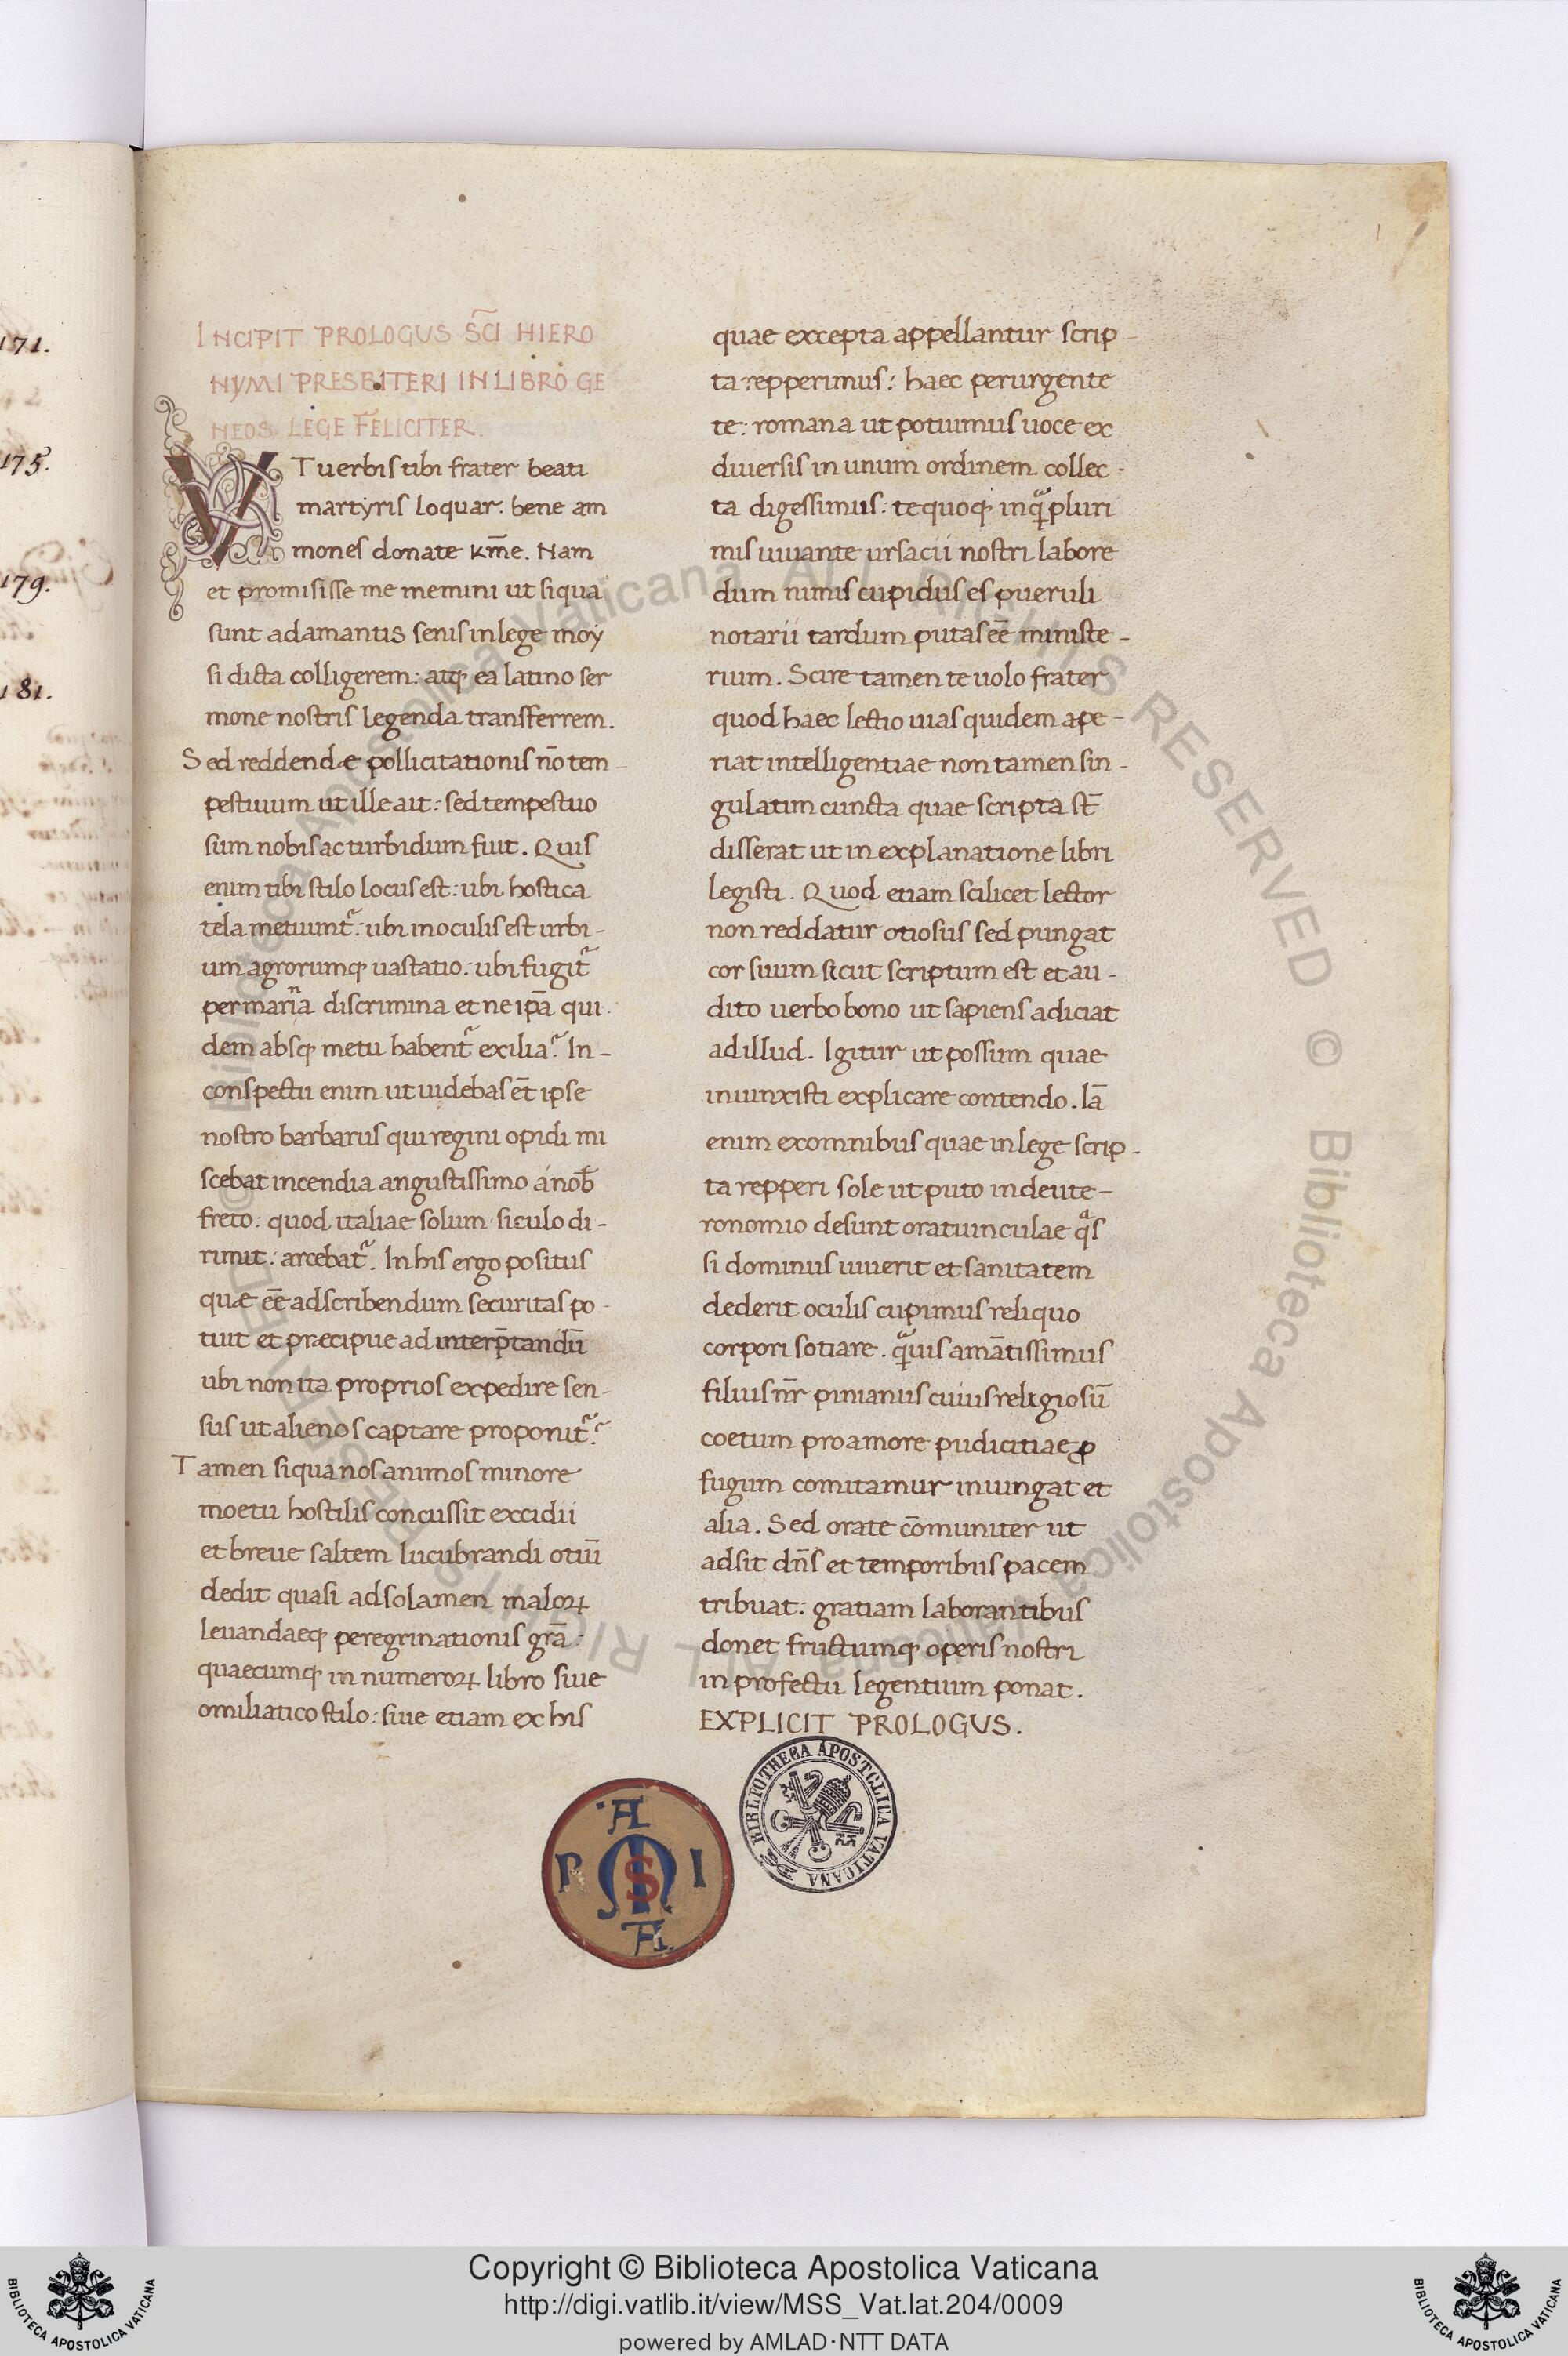 171.
175.
179.
181.
INCIPIT PROLOGUS SC̄I HIERO
NYMI PRESBITERI IN LIBRO GE
NEOS LEGE FELICITER.
VT uerbis tibi frater beati
martyris loquar: bene am
mones donate km̄e. Nam
et promisisse me memini ut siqua
sunt adamantis senis in lege moy
si dicta colligerem: atq; ea latino ser
mone nostris legenda transferrem.
Sed reddendæ pollicitationis nō tem-
pestiuum ut ille ait: sed tempestuo
sum nobis ac turbidum fuit. Quis
enim tibi stilo locus est: ubi hostica
tela metuunt᷑: ubi in oculis est urbi-
um agrorumq; uastatio: ubi fugit᷑
per marina discrimina et ne ip̄a qui
dem absq; metu habent᷑ exilia? In-
conspectu enim ut uidebas et̄ ipse
nostro barbarus qui regini opidi mi
scebat incendia angustissimo a nob̄
freto: quod italiae solum siculo di-
rimit: arcebat᷑. In his ergo positus
quæ eē ad scribendum securitas po-
tuit et præcipue ad interp̄tandū
ubi non ita proprios expedire sen-
sus ut alienos captare proponit᷑?
Tamen siqua nos animos minore
moetu hostilis concussit excidii
et breue saltem lucubrandi otiū
dedit quasi ad solamen maloꝝ
leuandaeq; peregrinationis grā:
quaecumq; in numeroꝝ libro siue
omiliatico stilo: siue etiam ex his
quae excepta appellantur scrip-
ta repperimus: haec perurgente
te: romana ut potuimus uoce ex
diuersis in unum ordinem collec-
ta digessimus: te quoq; inqͣ pluri
mis iuuante ursacii nostri labore
dum nimis cupidus es pueruli
notarii tardum putas eē ministe-
rium. Scire tamen te uolo frater
quod haec lectio uias quidem ape-
riat intelligentiae non tamen sin-
gulatim cuncta quae scripta st̄
disserat ut in explanatione libri
legisti. Quod etiam scilicet lector
non reddatur otiosus sed pungat
cor suum sicut scriptum est et au-
dito uerbo bono ut sapiens adiciat
ad illud. Igitur ut possum quae
iniunxisti explicare contendo. Iā
enim ex omnibus quae in lege scrip-
ta repperi sole ut puto in deute-
ronomio desunt oratiunculae qͣs
si dominus iuuerit et sanitatem
dederit oculis cupimus reliquo
corpori sotiare. qͣuis amātissimus
filius nr̄ pinianus cuius religiosū
coetum pro amore pudicitiae ꝓ
fugum comitamur iniungat et
alia. Sed orate cōmuniter ut
adsit dn̄s et temporibus pacem
tribuat: gratiam laborantibus
donet fructumq; operis nostri
in profectu legentium ponat.
EXPLICIT PROLOGUS.
BIBLIOTHECA APOSTOLICA VATICANA
© Biblioteca Apostolica Vaticana ALL RIGHTS RESERVED
© Biblioteca Apostolica Vaticana ALL RIGHTS RESERVED
Copyright © Biblioteca Apostolica Vaticana
http://digi.vatlib.it/view/MSS_Vat.lat.204/0009
powered by AMLAD·NTT DATA
BIBLIOTECA APOSTOLICA VATICANA
BIBLIOTECA APOSTOLICA VATICANA